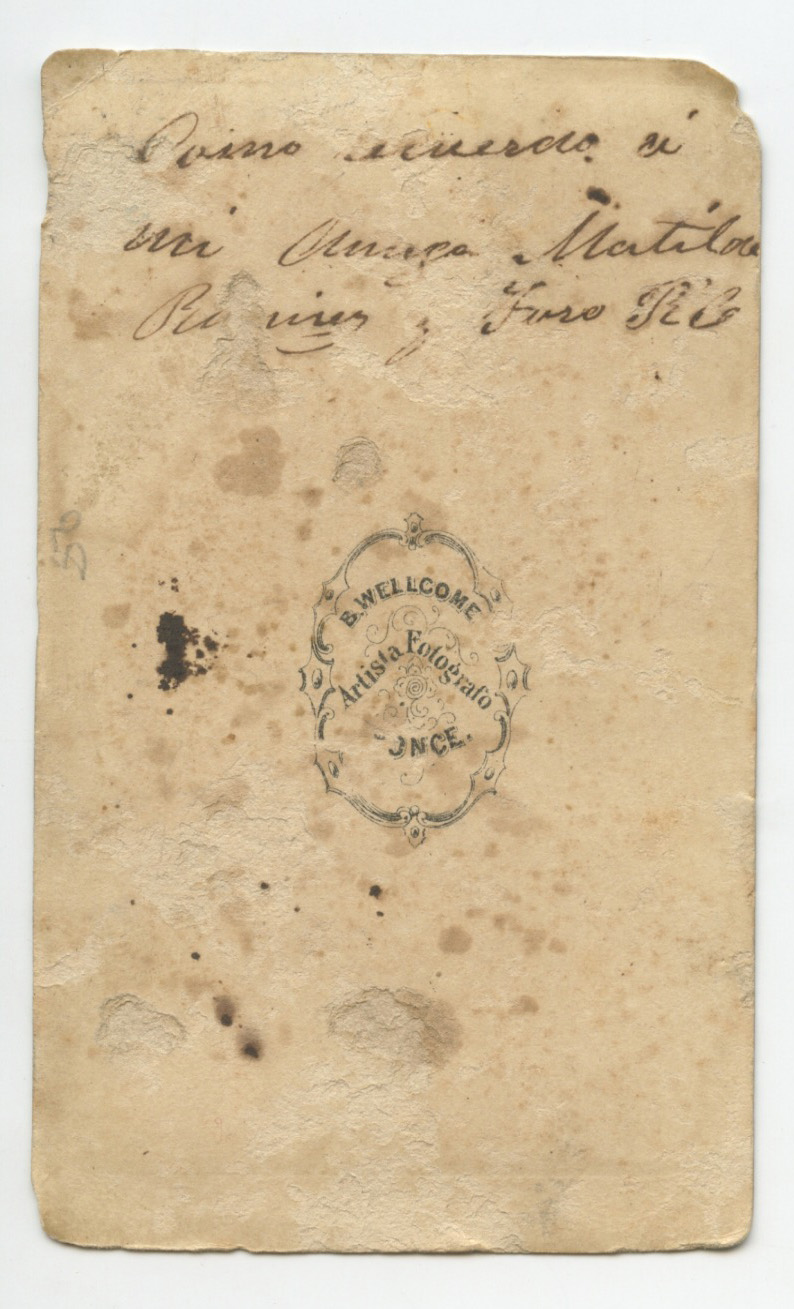 Como recuerdo á
mi Amiga Matilde
Ramires y Foro R C
B. WELLCOME
Artista Fotografo
PONCE.
56